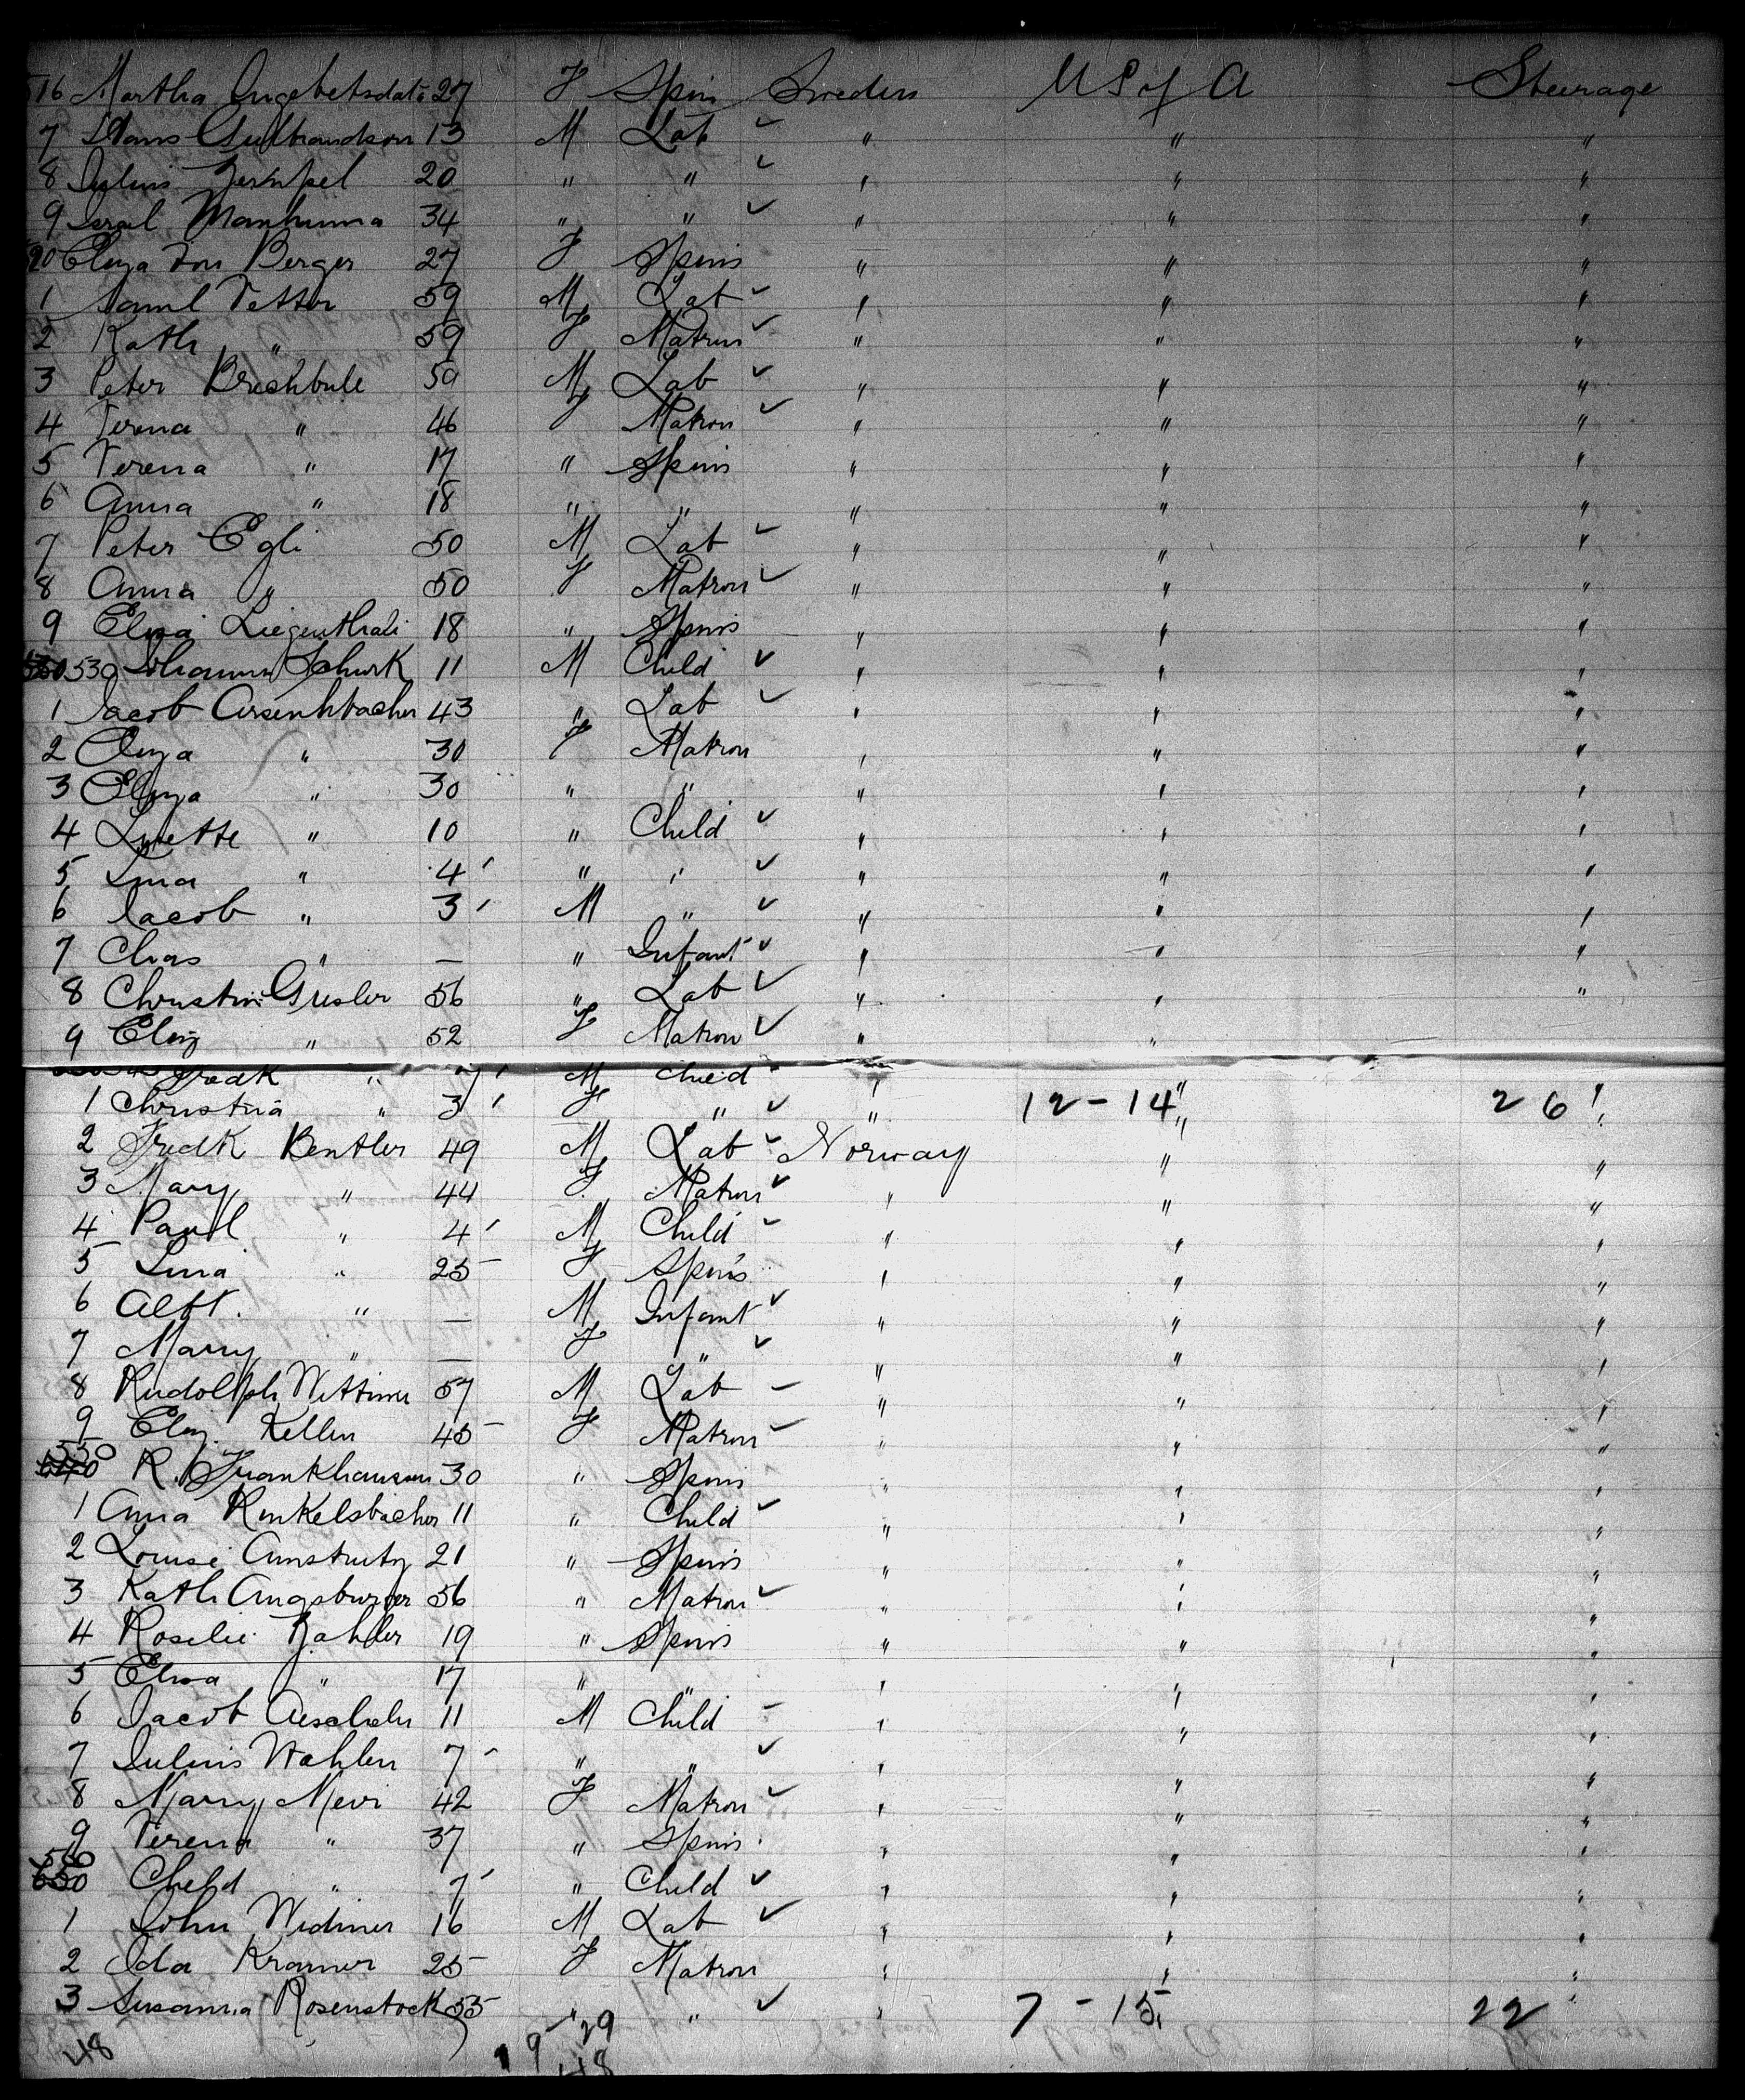 516 Martha Ingebetsdatr 27 F Spin Sweden US of A Steerage
7 Hans Gulbrandson 13 M Lab ✓ " " "
8 Julius 20 " " ✓ " " "
9 Israel 34 " " ✓ " " "
20 Eliza von Berger 27 F Spins " " "
1 Saml Vetter 59 M Lab ✓ " " "
2 Kath " 59 F Matron ✓ " " "
3 Peter Brechbule 50 M Lab ✓ " " "
4 Verena " 46 F Matron ✓ " " "
5 Verena " 17 " Spins " " "
6 Anna " 18 " " " " "
7 Peter Egli 50 M Lab ✓ " " "
8 Anna " 50 F Matron ✓ " " "
9 Eliza Liegenthali 18 " Spins " " "
530 Johanna Schurk 11 M Child ✓ " " "
1 Jacob Arsenhbacher 43 " Lab ✓ " " "
2 " 30 F Matron " " "
3 Eliza " 30 " " " " "
4 " 10 " Child ✓ " " "
5 Lina " 4 " " ✓ " " "
6 Jacob " 3 M " ✓ " " "
7 Chas " — " Infant ✓ " " "
8 Christin Gusler 56 " Lab ✓ " " "
9 Eliz " 52 F Matron ✓ " "
Fredk " 7 M Child " " "
1 Christina " 3 F " ✓ " 12-14 " 26 "
2 Fredk Bentler 49 M Lab ✓ Norway " "
3 Mary " 44 F Matron ✓ " " "
4 Paul " 4 M Child ✓ " " "
5 Lina " 25 F Spins " " "
6 Albt. " — M Infant ✓ " " "
7 Mary " — F " ✓ " " "
8 Rudolph Wittimer 57 M Lab – " " "
9 Eliz. Keller 45 F Matron ✓ " " "
550 R. Frankhausen 30 " Spins " " "
1 Anna Runkelsbacher 11 " Child ✓ " " "
2 Louise Amstutz 21 " Spins " " "
3 Kath Augsburger 56 " Matron ✓ " " "
4 Roselie Zahler 19 " Spins " " "
5 Elisa " 17 " " " " "
6 Jacob 11 M Child – " " "
7 Julius Wahlen 7 " " ✓ " " "
8 Mary Meri 42 F Matron ✓ " " "
9 Verena " 37 " Spins " " "
560 Child " 7 " Child ✓ " " "
1 John Widmer 16 M Lab ✓ " " "
2 Ida Kramer 25 F Matron " " "
3 Susanna Rosenstock 55 " " ✓ " 7-15 22 "
48 19-29
48